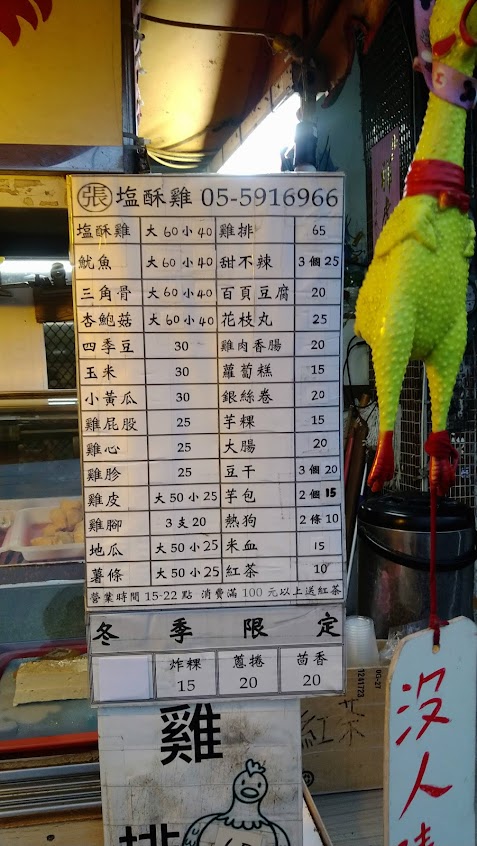 張 塩酥雞 05-5916966
塩酥雞 大60小40 雞排 65
魷魚 大60小40 甜不辣 3個25
三角骨 大60小40 百頁豆腐 20
杏鮑菇 大60小40 花枝丸 25
四季豆 30 雞肉香腸 20
玉米 30 蘿蔔糕 15
小黃瓜 30 銀絲卷 20
雞屁股 25 芋粿 15
雞心 25 大腸 20
雞胗 25 豆干 3個20
雞皮 大50小25 芋包 2個15
雞腳 3支20 熱狗 2條10
地瓜 大50小25 米血 15
薯條 大50小25 紅茶 10
營業時間 15-22 點 消費滿 100 元以上送紅茶
冬季限定
炸粿 蔥捲 茴香
15 20 20
雞
排
紅茶
沒人